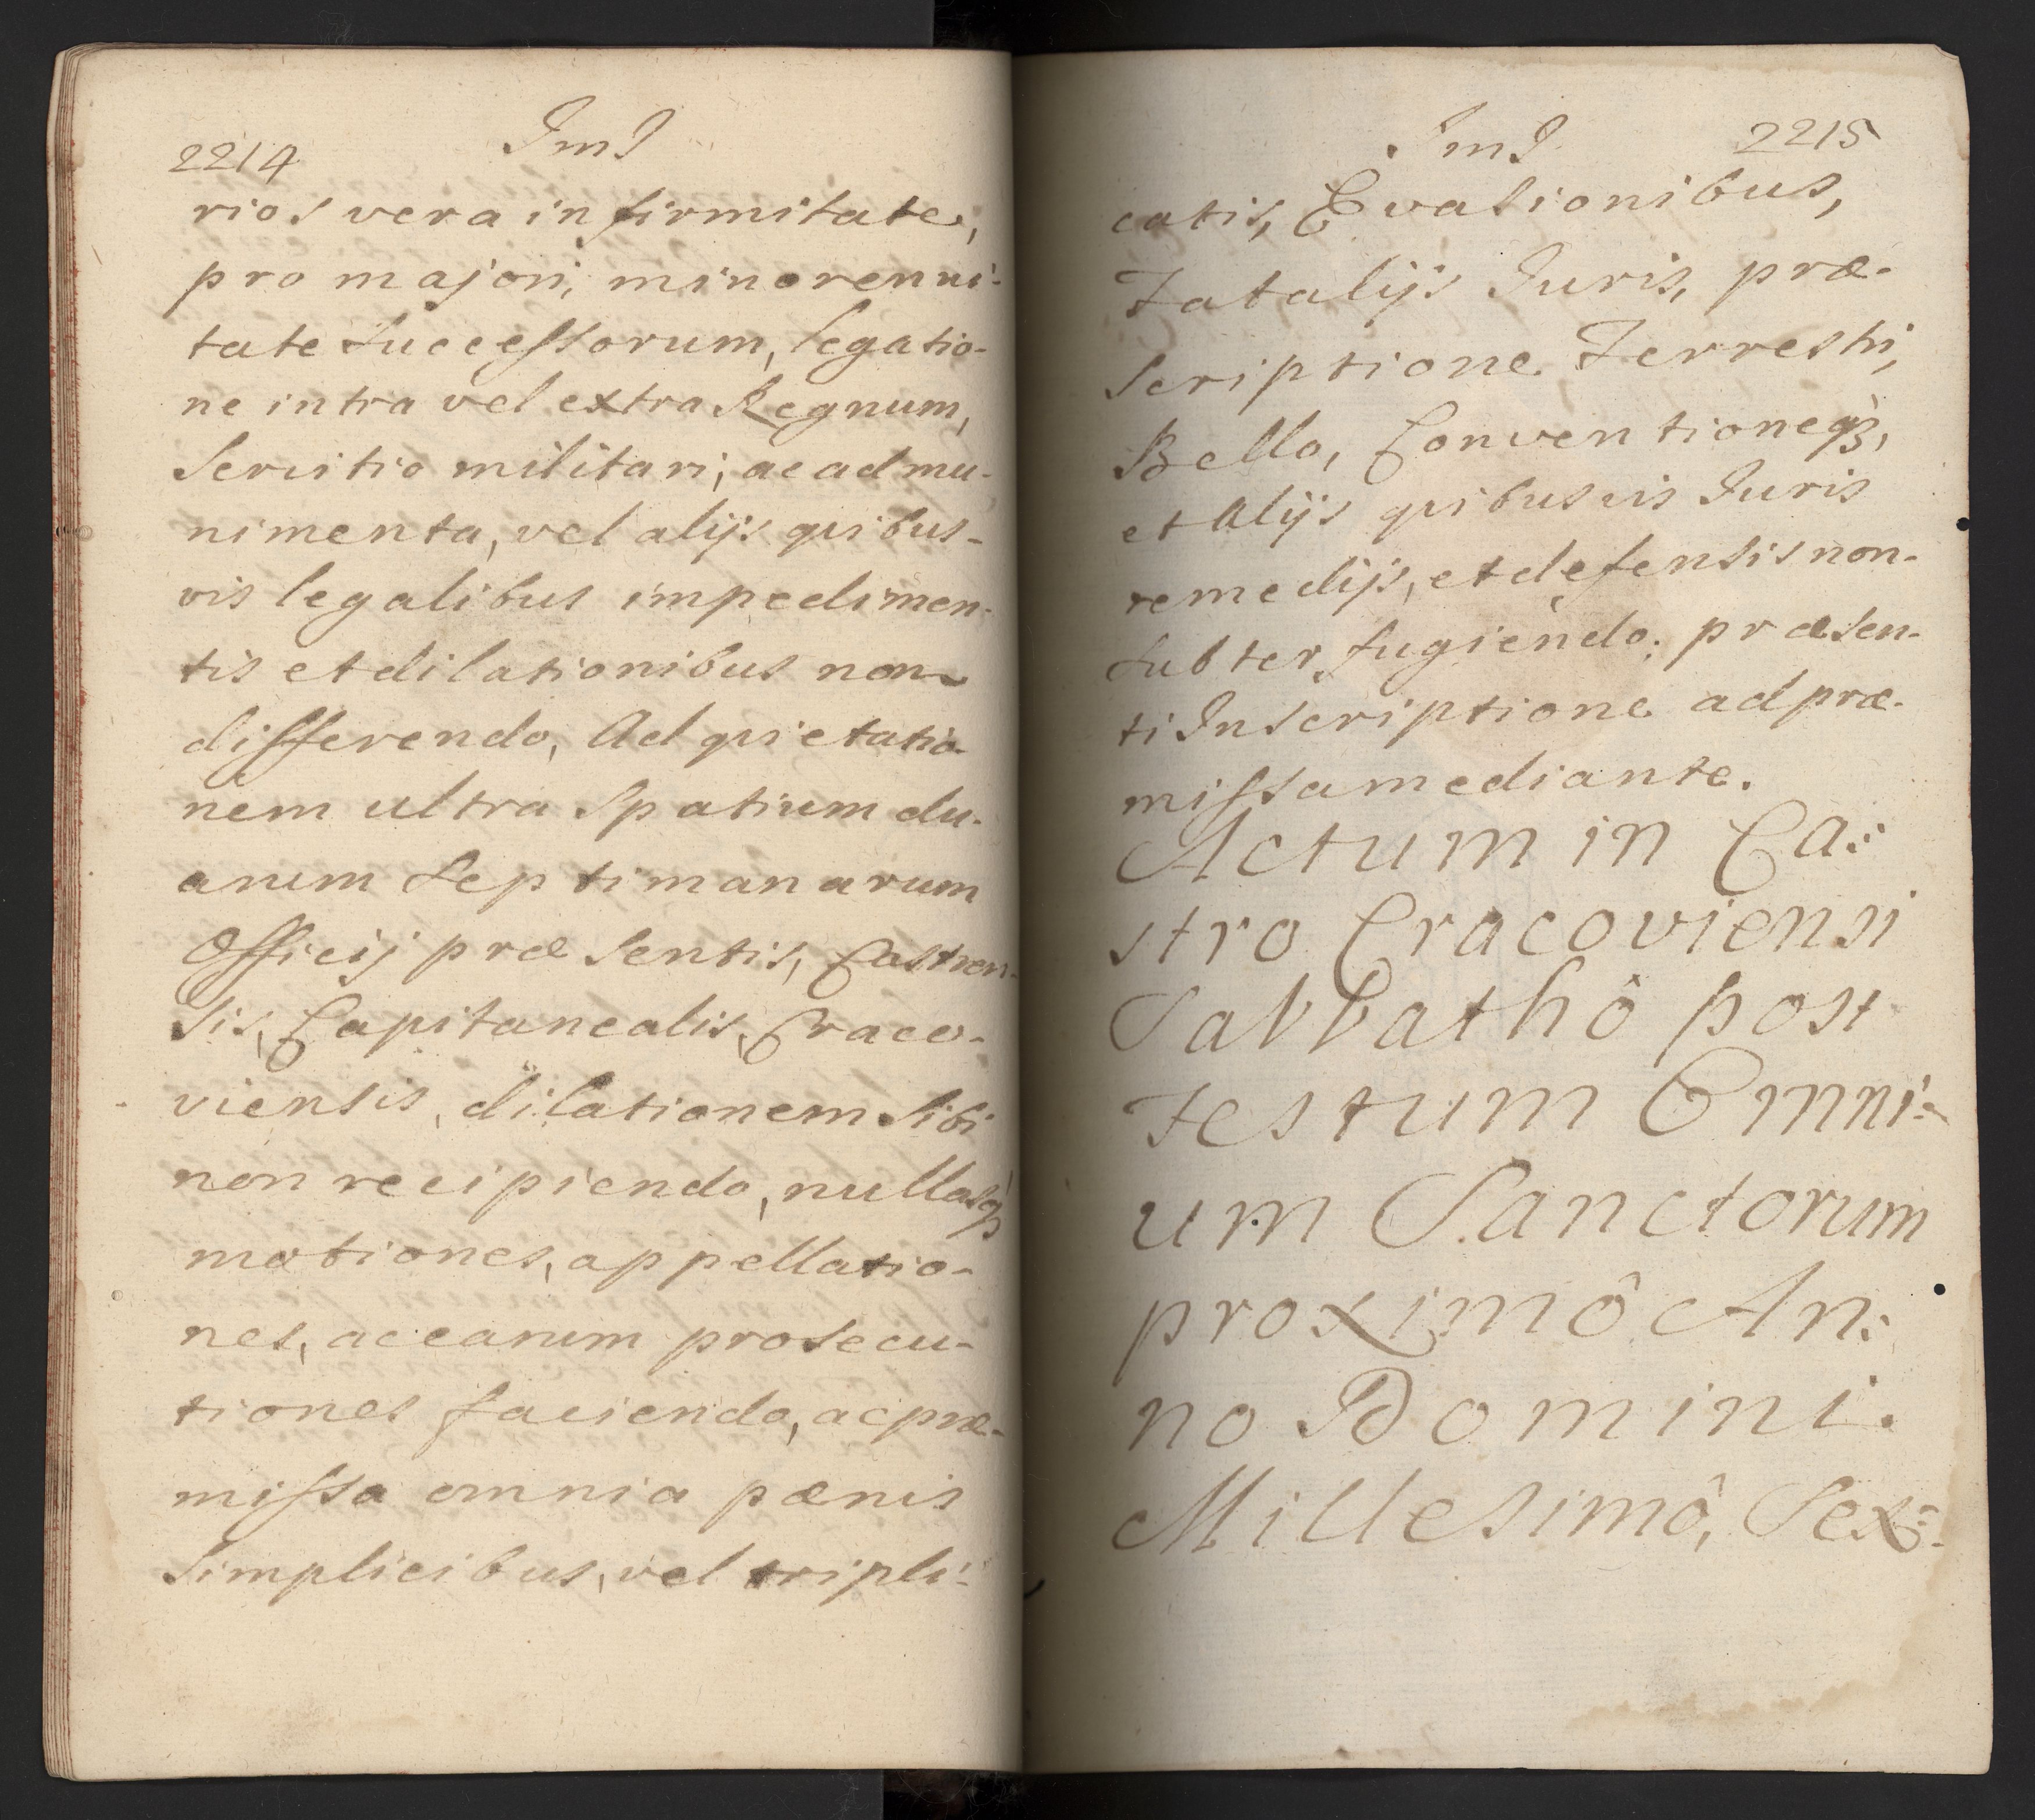 2214 JmJ
rios vera infirmitate,
pro majori, minorenni-
tate Successorum, legatio-
ne intra vel extra Regnum,
Servitio militari, ac ad mu-
nimenta, vel alijs quibus-
vis legalibus impedimen-
tis et dilationibus non
differendo, Ad quietatio-
nem ultra Spatium du-
arum Septimanarum
Officij præsentis, Castren-
sis, Capitanealis, Craco-
viensis, dilationem Sibi
non recipiendo, nullasq3
motiones, appellatio-
nes, ac earum prosecu-
tiones faciendo, ac præ-
missa omnia pænis
Simplicibus, vel tripli-
JmJ 2215
catis, Evasionibus,
Fatalijs Juris, præ-
scriptione Terrestri,
Bello, Conventioneq3,
et Alijs quibusvis Juris
remedijs, et defensis non-
Subterfugiendo; præsen-
ti Inscriptione ad præ-
missa mediante.
Actum in Ca:
stro Cracoviensi
Sabbathô post
Festum Omni:
um Sanctorum
proximô An:
no Domini.
Millesimô, Sex: